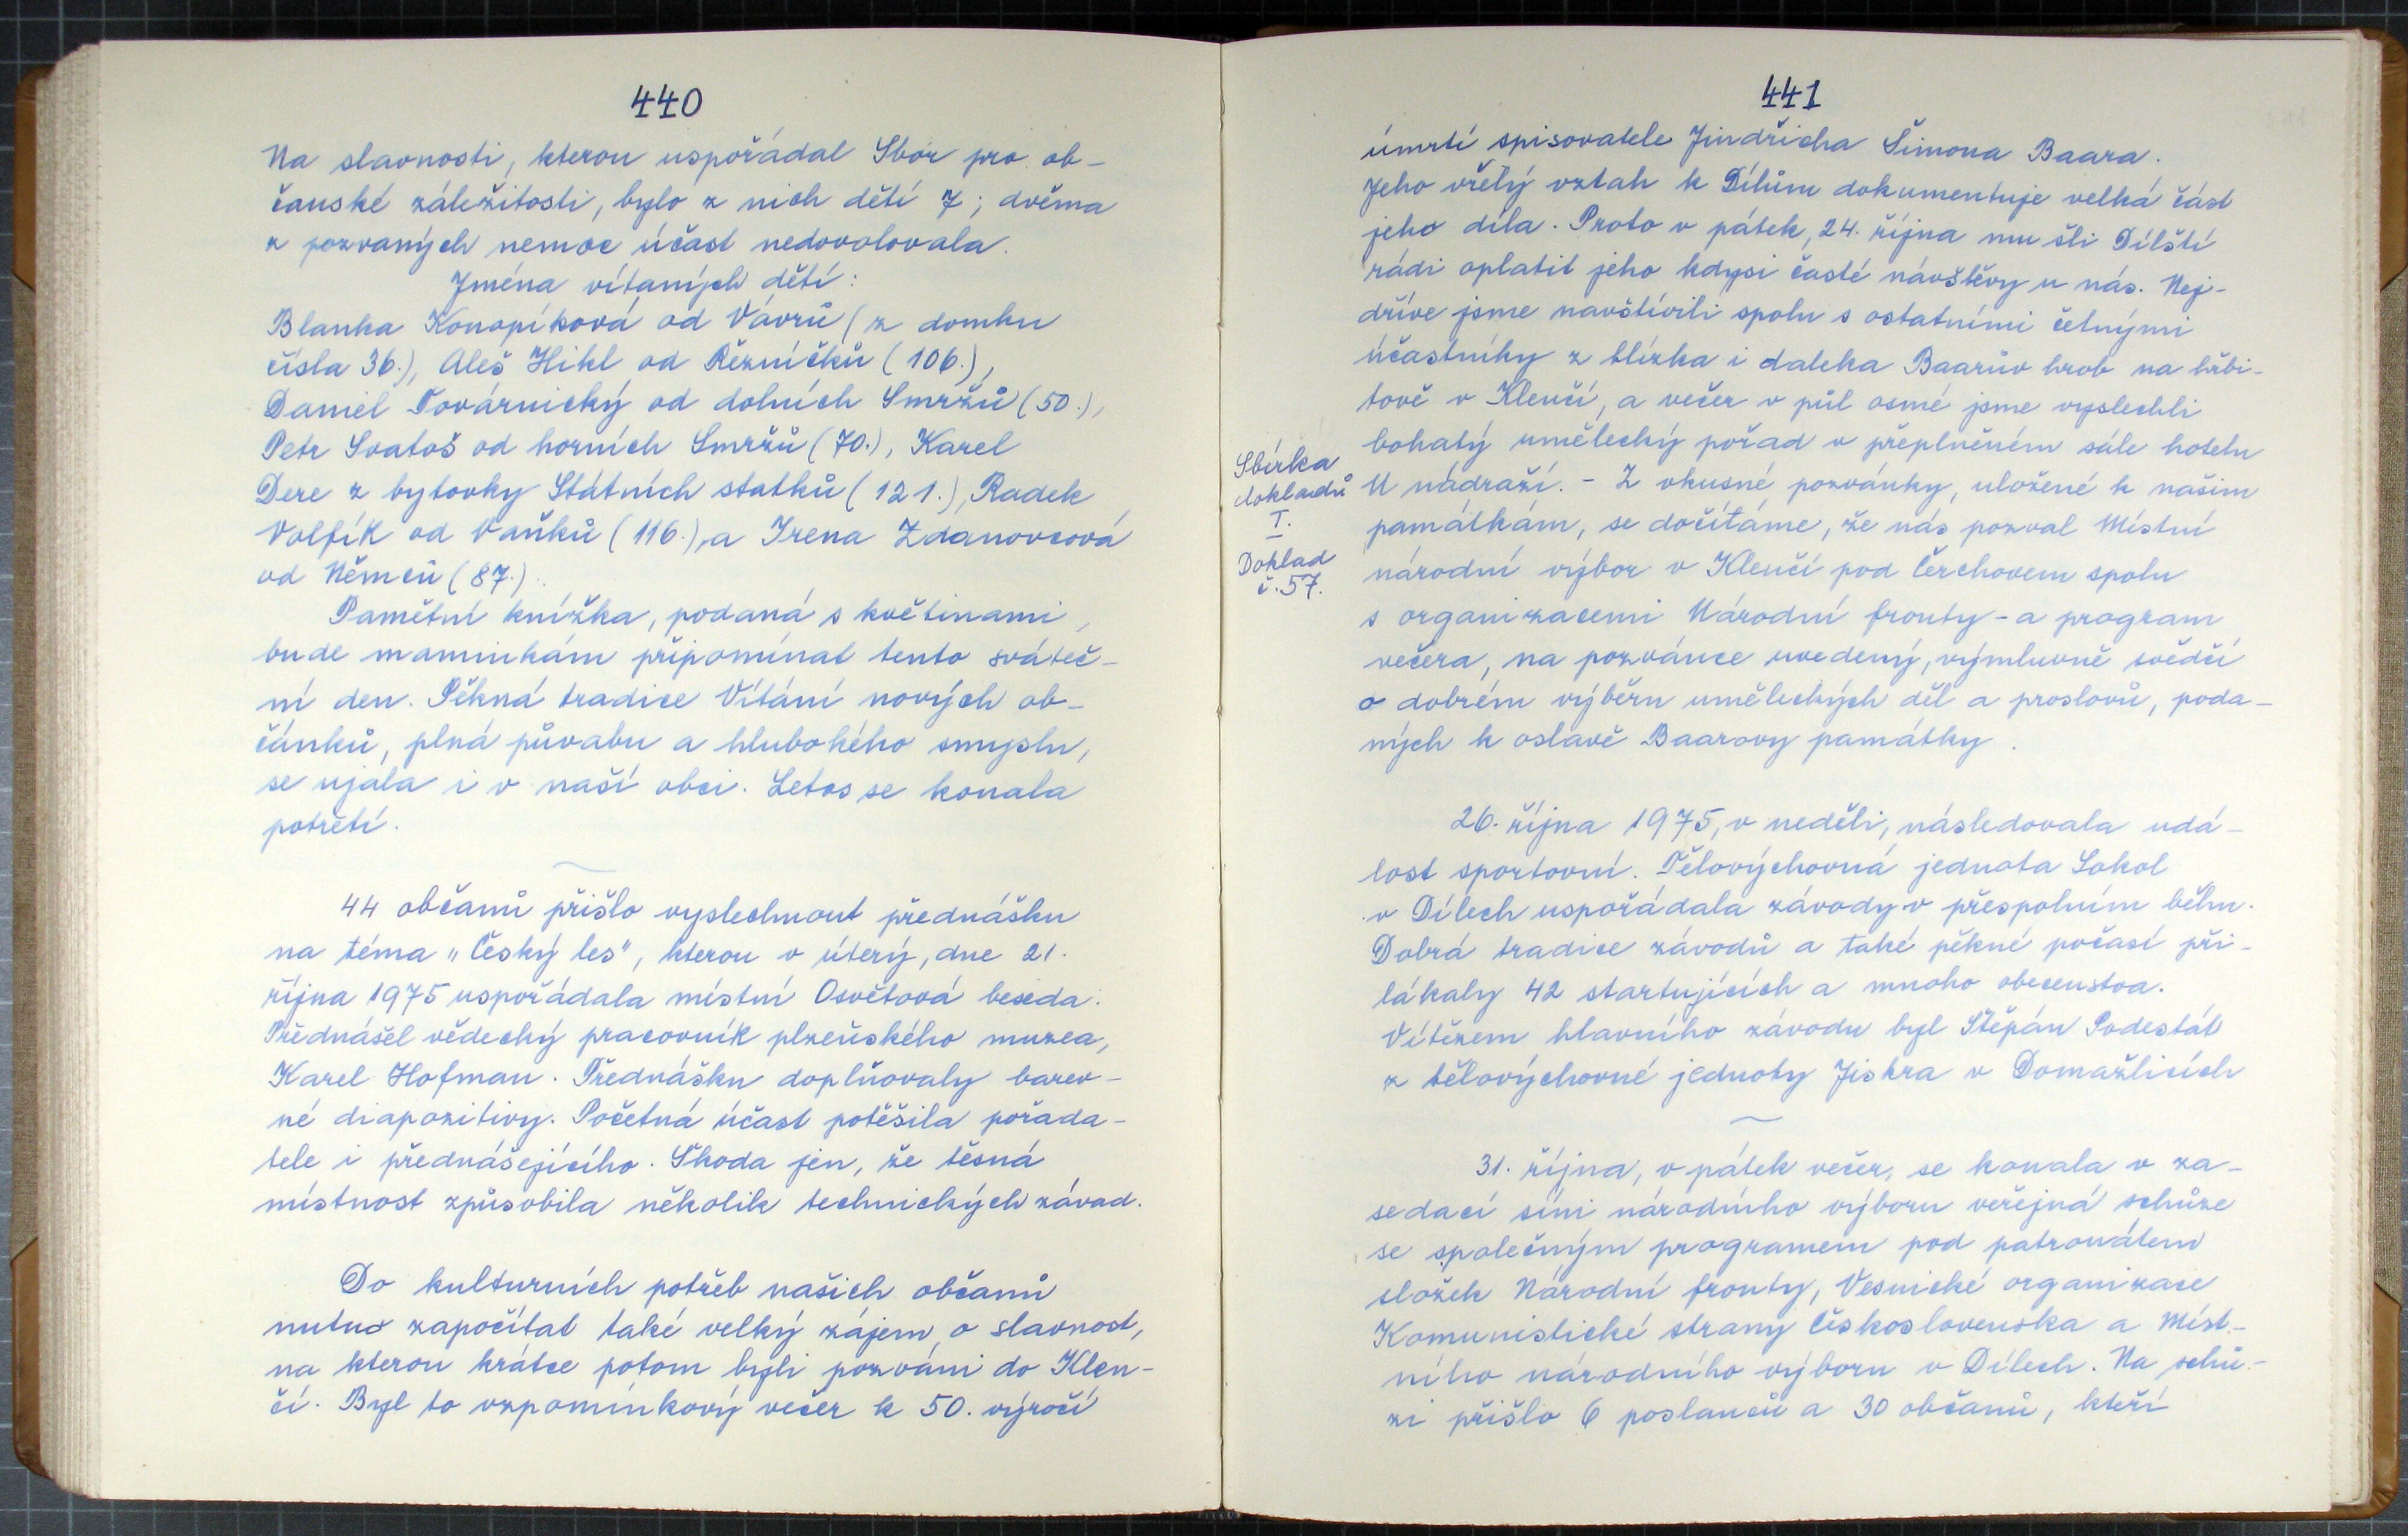 440
Na slavnosti, kterou uspořádal Sbor pro ob-
čanské záležitosti, bylo z nich dětí 7; dvěma
z pozvaných nemoc účast nedovolovala.
Jména vítaných dětí:
Blanka Konopíková od Vávrů (z domku
čísla 36.), Aleš Hikl od Řezníčků (106.),
Daniel Továrnický od dolních Smržů (50.),
Petr Svatoš od horních Smržů (70.), Karel
Dere z bytovky Státních statků (121.), Radek
Volfík od Vaňků (116.), a Irena Zdanovcová
od Němců (87.).
Pamětní knížka, podaná s květinami,
bude maminkám připomínat tento sváteč-
ní den. Pěkná tradice Vítání nových ob-
čánků, plná půvabu a hlubokého smyslu,
se ujala i v naší obci. Letos se konala
potřetí.
44 občanů přišlo vyslechnout přednášku
na téma „Český les", kterou v úterý, dne 21.
října 1975 uspořádala místní Osvětová beseda.
Přednášel vědecký pracovník plzeňského muzea,
Karel Hofman. Přednášku doplňovaly barev-
né diapozitivy. Početná účast potěšila pořada-
tele i přednášejícího. Škoda jen, že těsná
místnost způsobila několik technických závad.
Do kulturních potřeb našich občanů
nutno započítat také velký zájem o slavnost,
na kterou krátce potom byli pozváni do Klen-
čí. Byl to vzpomínkový večer k 50. výročí
441
úmrtí spisovatele Jindřicha Šimona Baara.
Jeho vřelý vztah k Dílům dokumentuje velká část
jeho díla. Proto v pátek, 24. října mu šli Dílští
rádi oplatit jeho kdysi časté návštěvy u nás. Nej-
dříve jsme navštívili spolu s ostatními četnými
účastníky z blízka i daleka Baarův hrob na hřbi-
tově v Klenčí, a večer v půl osmé jsme vyslechli
bohatý umělecký pořad v přeplněném sále hotelu
U nádraží. - Z vkusné pozvánky, uložené k našim
památkám, se dočítáme, že nás pozval Místní
národní výbor v Klenčí pod Čerchovem spolu
s organizacemi Národní fronty - a program
večera, na pozvánce uvedený, výmluvně svědčí
o dobrém výběru uměleckých děl a proslovů, poda-
ných k oslavě Baarovy památky.
Sbírka
dokladů
I.
Doklad
č. 57.
26. října 1975, v neděli, následovala udá-
lost sportovní. Tělovýchovná jednota Sokol
v Dílech uspořádala závody v přespolním běhu.
Dobrá tradice závodů a také pěkné počasí při-
lákaly 42 startujících a mnoho obecenstva.
Vítězem hlavního závodu byl Štěpán Podestát
z tělovýchovné jednoty Jiskra v Domažlicích
31. října, v pátek večer, se konala v za-
sedací síni národního výboru veřejná schůze
se společným programem pod patronátem
složek Národní fronty, Vesnické organizace
Komunistické strany Československa a Míst-
ního národního výboru v Dílech. Na schů-
zi přišlo 6 poslanců a 30 občanů, kteří